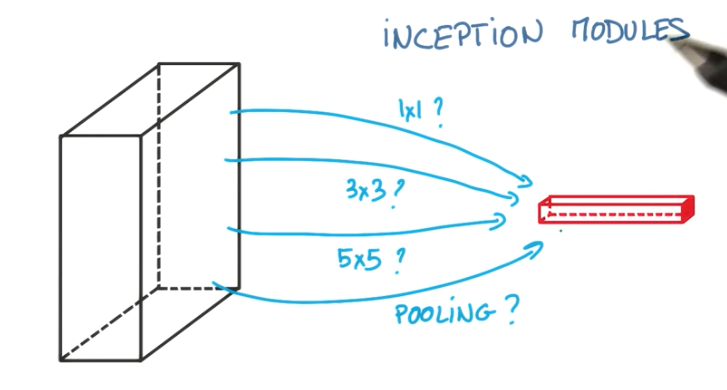 iNCEPTION MODULES
1x1 ?
3x3 ?
5x5 ?
POOLiNG ?